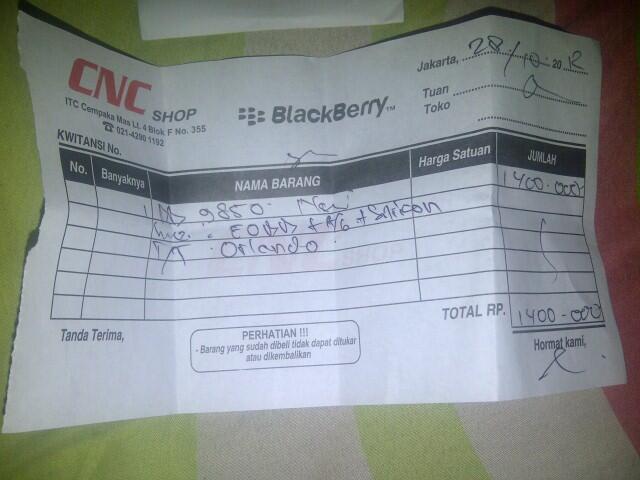 CNC SHOP
ITC Cempaka Mas Lt. 4 Blok F No. 355
☎ 021-4290 1192
BlackBerry™
Jakarta, 28/10 2012
Tuan
Toko
KWITANSI No.
No. Banyaknya NAMA BARANG Harga Satuan JUMLAH
9850 1400.000
+ Silicon
Orlando
TOTAL RP. 1400-000
Tanda Terima,
PERHATIAN !!!
- Barang yang sudah dibeli tidak dapat ditukar
atau dikembalikan
Hormat kami,